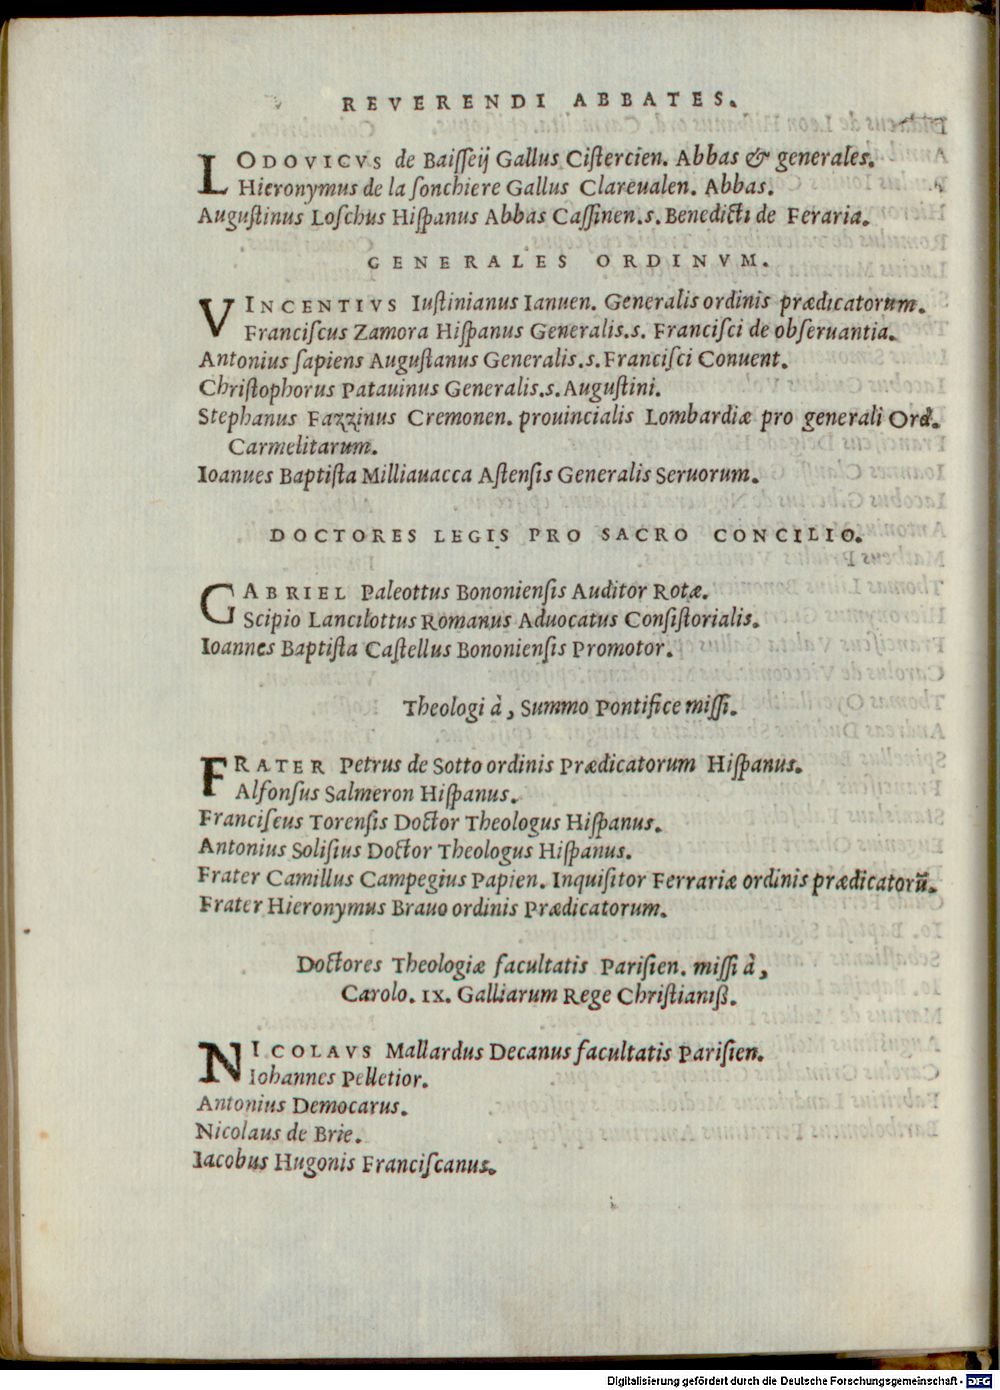 REVERENDI ABBATES.
LODOVICVS de Baiſſeij Gallus Ciſtercien. Abbas & generales.
Hieronymus de la ſonchiere Gallus Clareualen. Abbas.
Auguſtinus Loſchus Hiſpanus Abbas Caſſinen.s. Benedicti de Feraria.
GENERALES ORDINVM.
VINCENTIVS Iuſtinianus Ianuen. Generalis ordinis prædicatorum.
Franciſcus Zamora Hiſpanus Generalis.s. Franciſci de obſeruantia.
Antonius ſapiens Auguſtanus Generalis.s. Franciſci Conuent.
Chriſtophorus Patauinus Generalis.s. Auguſtini.
Stephanus Fazzinus Cremonen. prouincialis Lombardiæ pro generali Ord.
Carmelitarum.
Ioanues Baptiſta Milliauacca Aſtenſis Generalis Seruorum.
DOCTORES LEGIS PRO SACRO CONCILIO.
GABRIEL Paleottus Bononienſis Auditor Rotæ.
Scipio Lancilottus Romanus Aduocatus Conſiſtorialis.
Ioannes Baptiſta Caſtellus Bononienſis Promotor.
Theologi à, Summo Pontifice miſſi.
FRATER Petrus de Sotto ordinis Prædicatorum Hiſpanus.
Alfonſus Salmeron Hiſpanus.
Franciſcus Torenſis Doctor Theologus Hiſpanus.
Antonius Soliſius Doctor Theologus Hiſpanus.
Frater Camillus Campegius Papien. Inquiſitor Ferrariæ ordinis prædicatorū.
Frater Hieronymus Brauo ordinis Prædicatorum.
Doctores Theologiæ facultatis Pariſien. miſſi à,
Carolo. IX. Galliarum Rege Chriſtianiß.
NICOLAVS Mallardus Decanus facultatis Pariſien.
Iohannes Pelletior.
Antonius Democarus.
Nicolaus de Brie.
Iacobus Hugonis Franciſcanus.
Digitalisierung gefördert durch die Deutsche Forschungsgemeinschaft - DFG